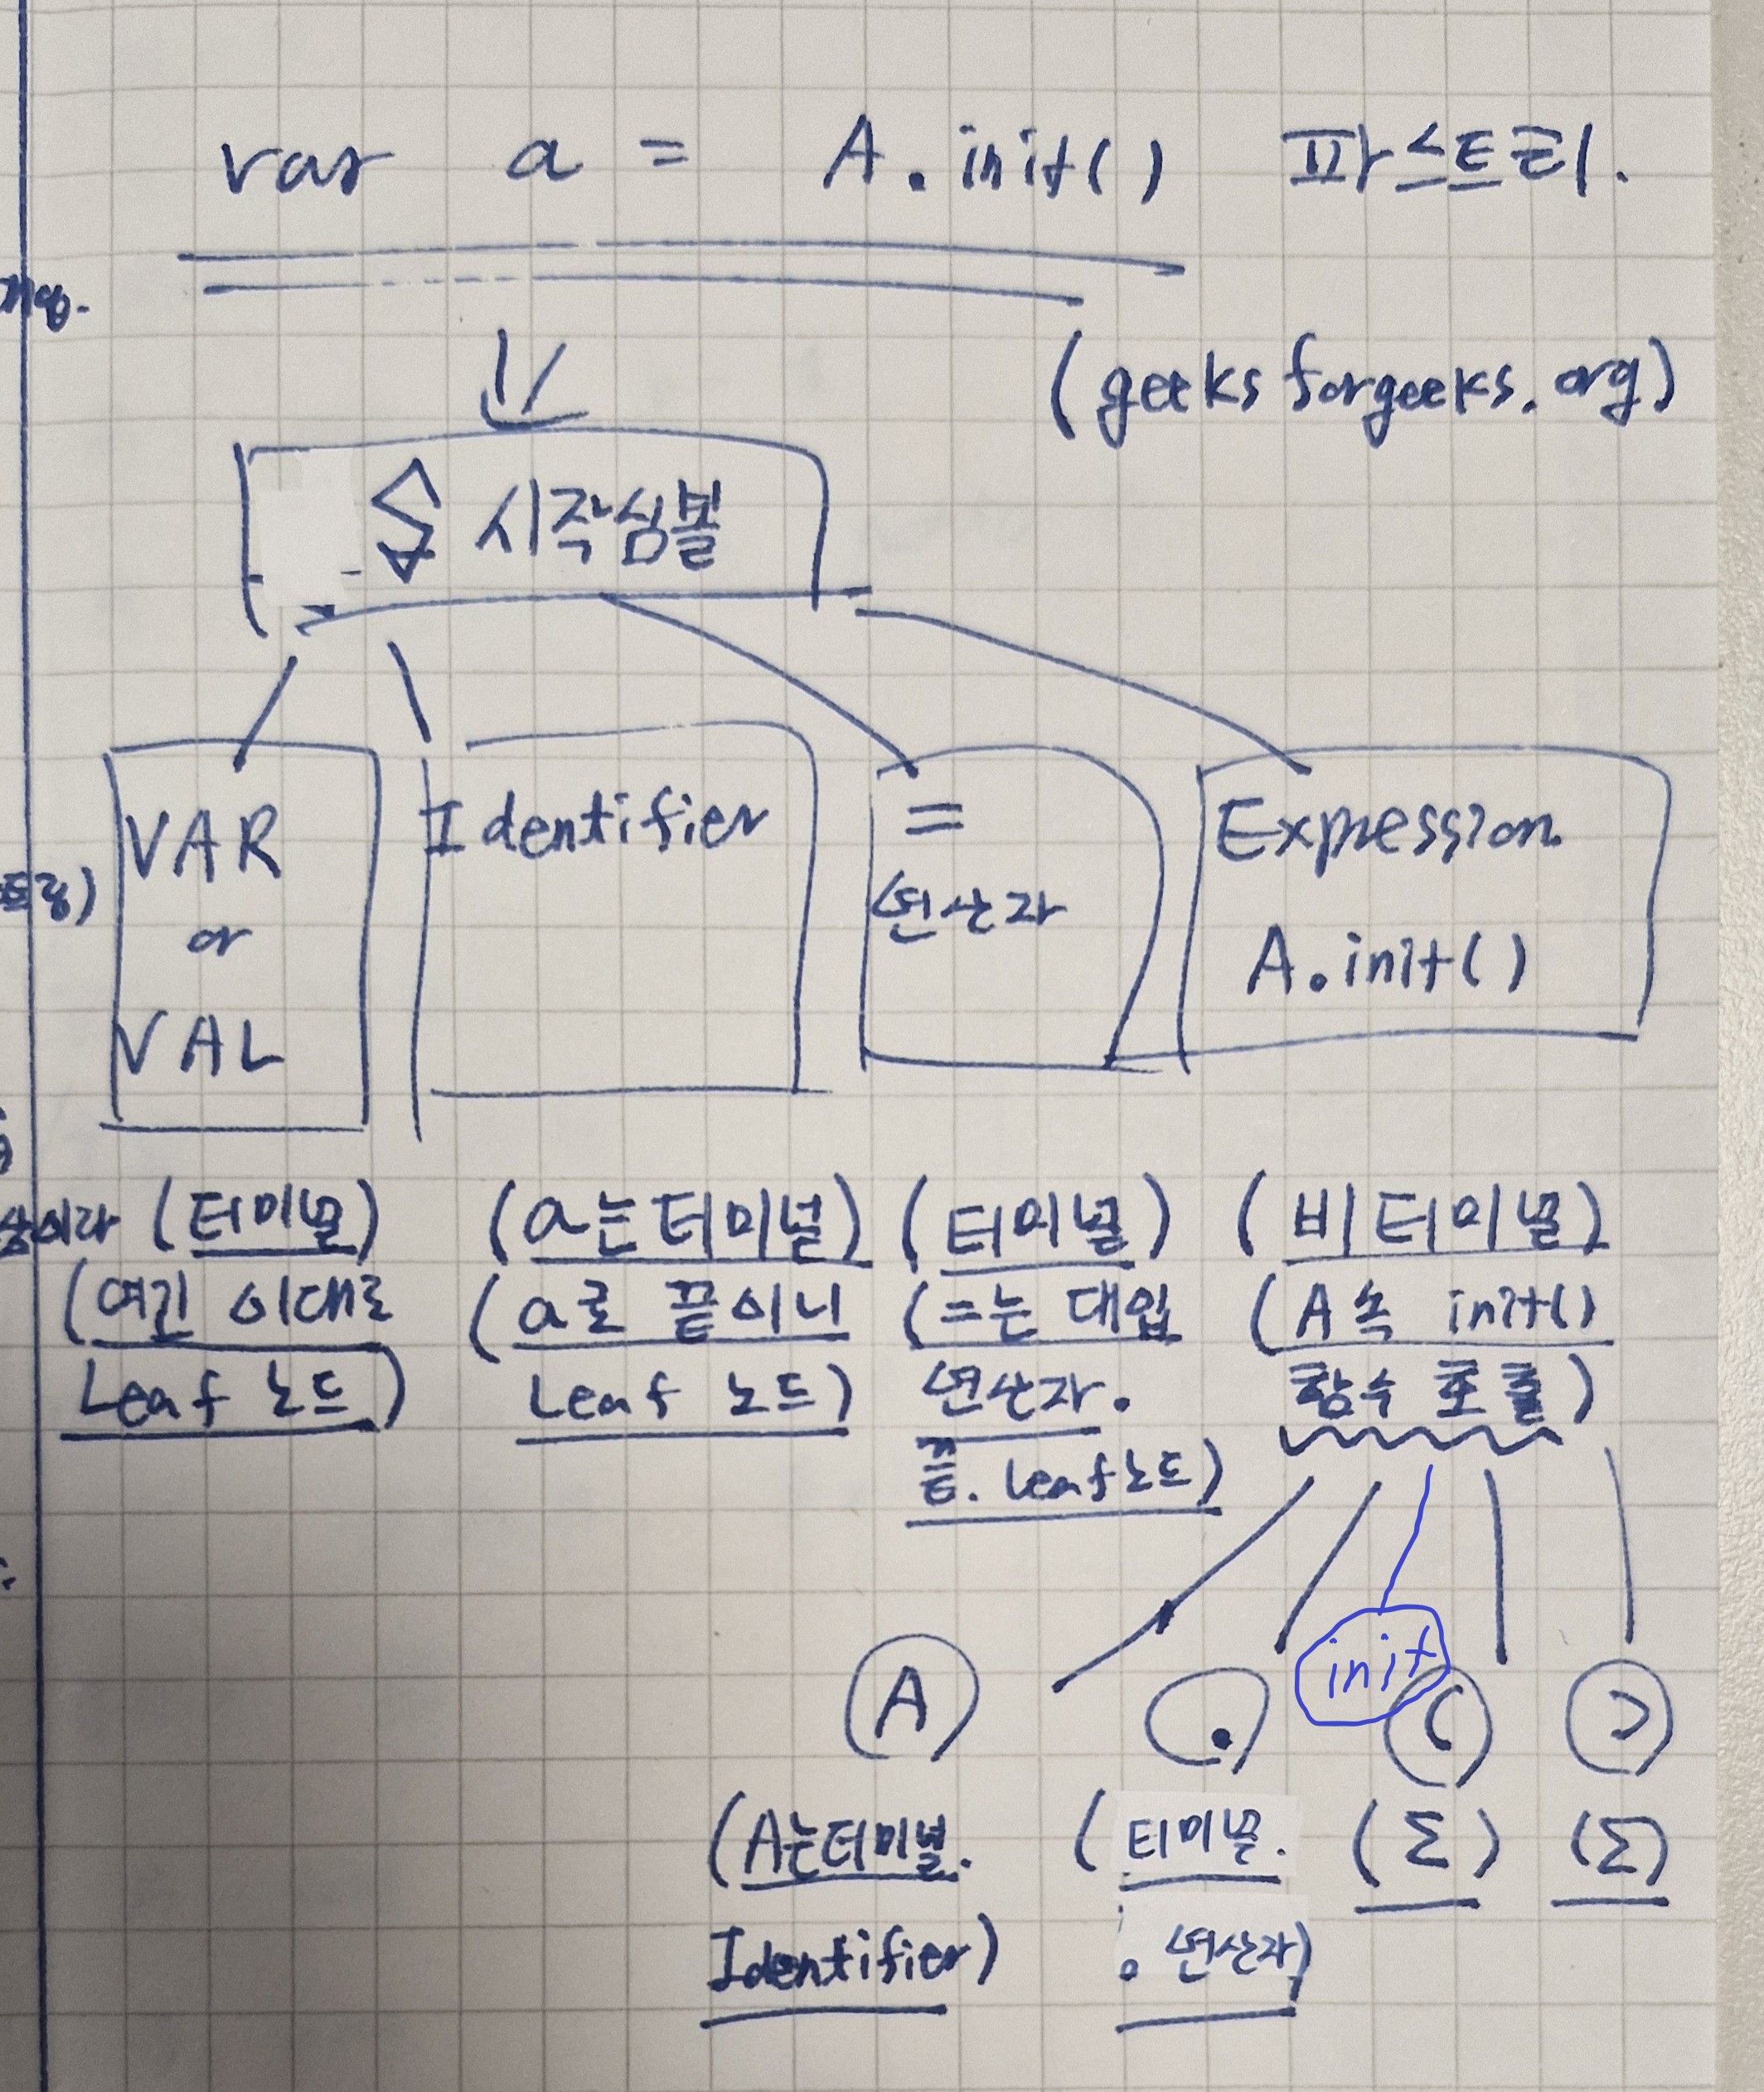 var a = A.init() 파스트리.
(geeksforgeeks.org)
S 시작심볼
VAR
or
VAL
Identifier
=
연산자
Expression
A.init()
(터미널)
(여긴 이대로
Leaf 노드)
(a는터미널)
(a로 끝이니
Leaf 노드)
(터미널)
(=는 대입
연산자.
끝. Leaf노드)
(비터미널)
(A속 init()
함수 호출)
A
.
init
(
)
(A는터미널.
Identifier)
(터미널.
. 연산자)
(Σ)
(Σ)
이라